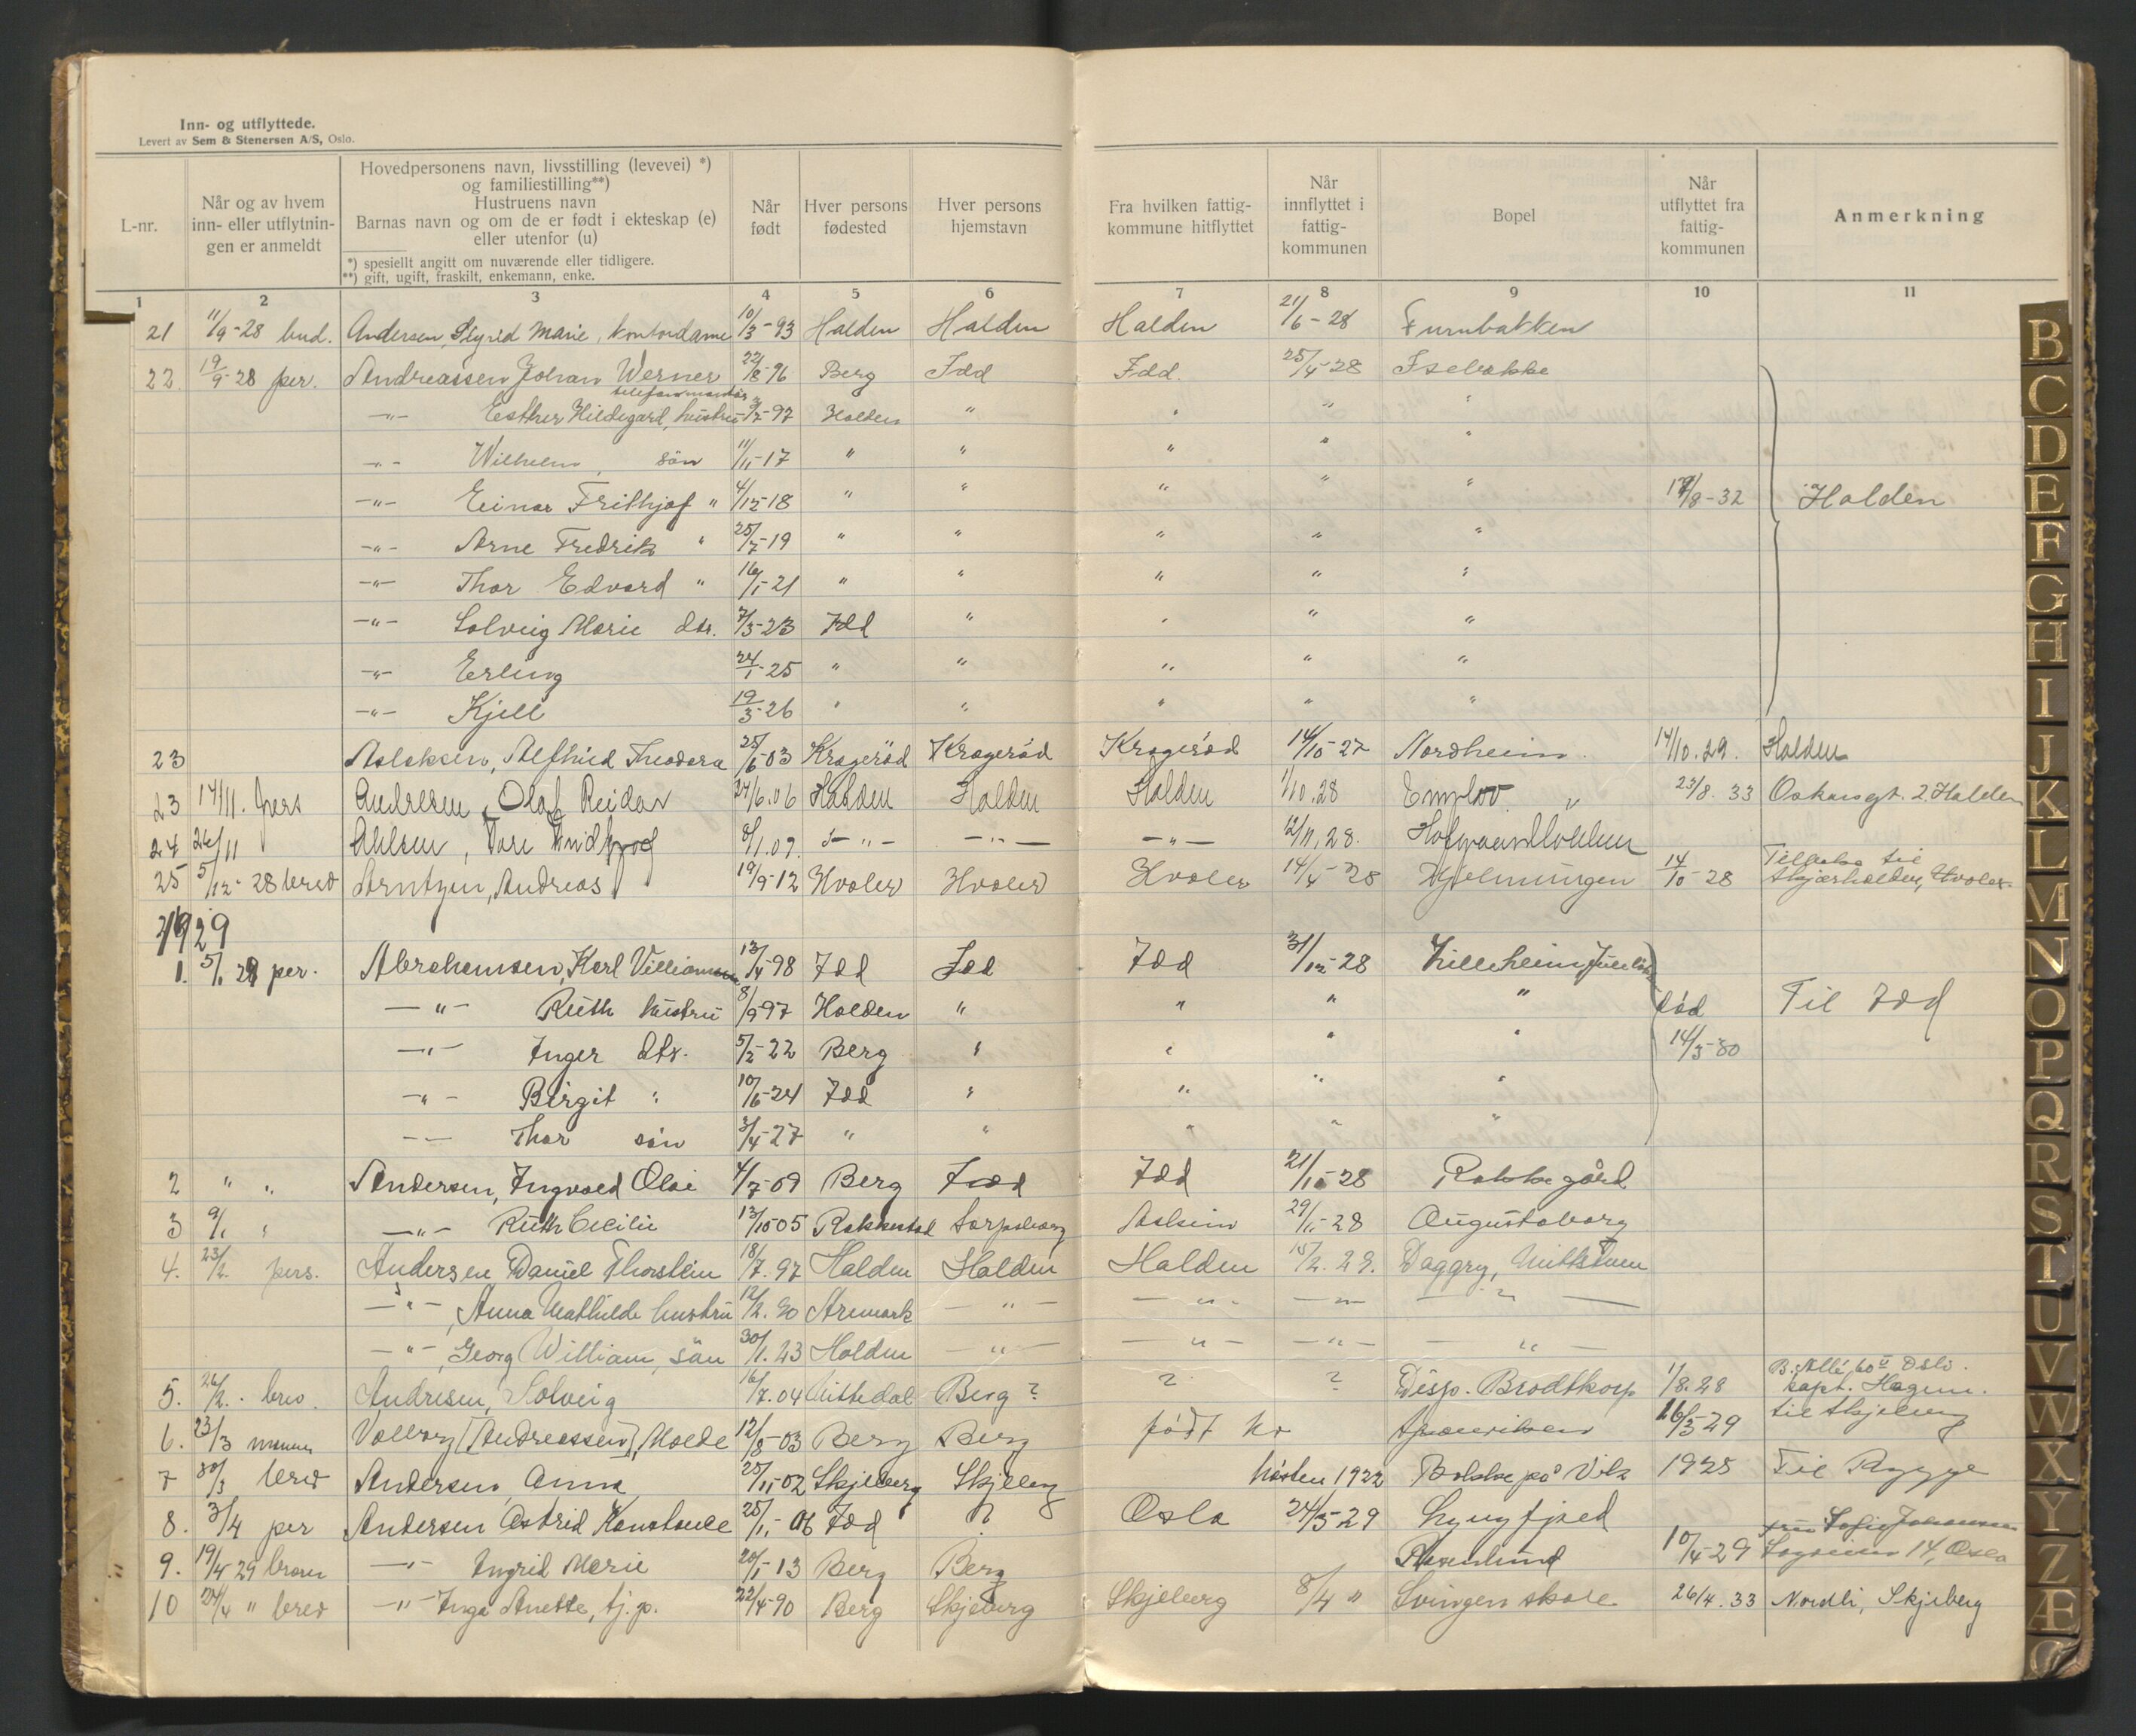 Inn- og utflyttede.
Levert av Sem & Stenersen A/S, Oslo.
L-nr.
Når og av hvem inn- eller utflytnin-gen er anmeldt
Hovedpersonens navn, livsstilling (levevei) *)
og familiestilling**)
Hustruens navn
Barnas navn og om de er født i ekteskap (e)
eller utenfor (u)
*) spesiellt angitt om nuværende eller tidligere.
**) gift, ugift, fraskilt, enkemann, enke.
Når født
Hver persons fødested
Hver persons hjemstavn
Fra hvilken fattig-kommune hitflyttet
Når innflyttet i fattig-kommunen
Bopel
Når utflyttet fra fattig-kommunen
Anmerkning
1 2 3 4 5 6 7 8 9 10 11
21 11/9-28 bud. Andersen, Sigrid Marie, kontordame 10/3-93 Halden Halden Halden 21/6-28 Furubakken
22. 19/9-28 per. Andreassen Johan Werner 22/8-96 Berg Idd Idd. 25/4-28 Isebakke
telefonmontør
-"- Esther Hildegard, hustru -97 Halden " " " "
-"- Wilhelm, søn 11/11-17 " " " " "
-"- Einar Frithjof " 4/12-18 " " " " " 17/8-32 Halden
-"- Arne Fredrik " 25/7-19 " " " " "
-"- Thor Edvard " 16/1-21 " " " " "
-"- Solveig Marie dtr. 7/3-23 Idd " " " "
-"- Erling 24/1-25 " " " " "
-"- Kjell 19/3-26 " " " " "
23 Aslaksen, Alfhild Theodora 25/6-03 Kragerød Kragerød Kragerød 14/10-27 Nordheim. 14/10.29. Halden
23 14/11. pers Andresen, Olaf Reidar 24/6.06 Halden Halden Halden 1/10.28 " 23/8.33 Oskarsgt. 2. Halden
24 26/11 Ahlsen, Tore 8/1.09. -"- -"- -"- 12/11.28.
25 5/12-28 brev Arntzen, Andreas 19/9-12 Hvaler Hvaler Hvaler 14/4-28 Hjelmungen 14/10-28 Tilbake til
Skjærhalden, Hvaler
1929
1. 5/1 29 per. Abrahamsen, Karl Villiam 13/4-98 Idd Idd Idd 31/12-28 Lilleheim,
-"- Ruth hustru 8/9-97 Halden " " " " Idd Til Idd
-"- Inger dtr. 5/2-22 Berg " " " " 14/3-30
-"- Birgit " 10/6-24 Idd " " " "
-"- Thor søn 3/4-27 " " " " "
2 " " Andersen, Ingvald Olai 4/7-09 Berg Idd Idd 21/10-28 Rokke gård
3 9/1 " -"- Ruth Cecilie 13/10-05 Rakkestad Sarpsborg Askim 29/11-28 Augustaborg
4. 23/2. pers. Andersen Daniel Thorstein 18/7.97 Halden Halden Halden 15/2.29. Daggry,
-"-, Anna Mathilde hustru 12/2.90 Aremark -"- -"- -"- -"-
-"-, Georg William, søn 30/1.23 Halden -"- -"- -"- -"-
5. 26/2. brev. Andresen, Solveig 16/7.04 Berg? ? ? Disp. Brodtkorp 1/8.28 B. Allé, 60 II Oslo.
kapt. Hagem.
6. 23/3 Valborg [Andreassen], Molde 12/8-03 Berg Berg født her 16/3-29 til Skjeberg
7 30/3 brev Andersen Anna 25/11-02 Skjeberg Skjeberg høsten 1922 Bakke på Vik 1925 Til Rygge
8. 3/4 per Andersen Astrid Konstanse 25/1-06 Idd ? Oslo 24/3-29 Lyngfjeld
9. 19/4 29 -"- Ingrid Marie 20/1-13 Berg Berg Rosenlund 10/4-29 fru Sofie Johansen
Sogveien 14, Oslo
10 24/4 " brev -"- Inga Anette, tj.p. 22/4-90 Berg Skjeberg Skjeberg 8/4 " Svingen skole 26/4.33 Nordli, Skjeberg
B
C
D
E
F
G
H
I
J
K
L
M
N
O
P
Q
R
S
T
U
V
W
X
Y
Z
Æ